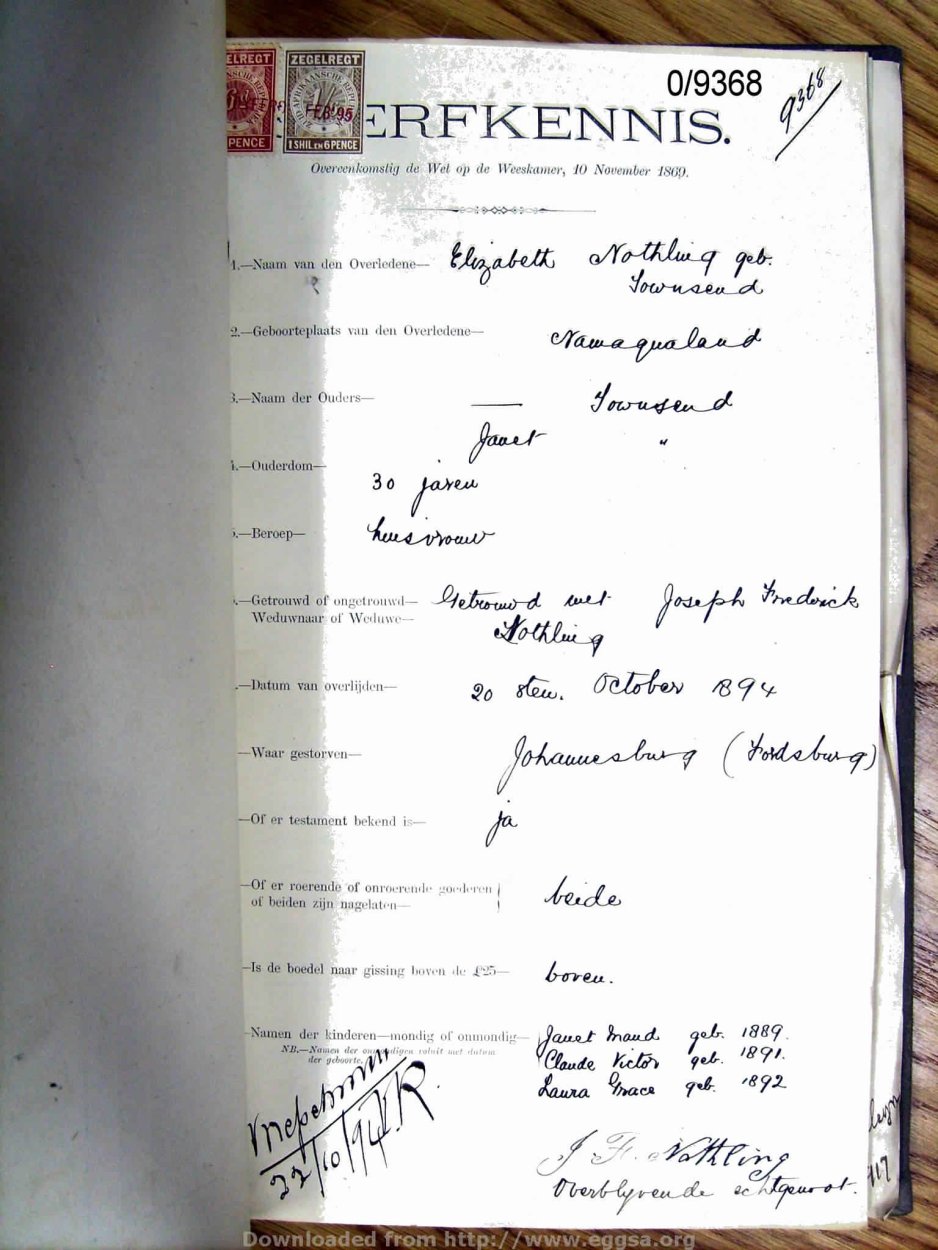 ZEGELREGT ZEGELREGT
FEB 95
PENCE 1 SHIL EN 6 PENCE
0/9368
9368
ERFKENNIS.
Overeenkomstig de Wet op de Weeskamer, 10 November 1869.
1.—Naam van den Overledene— Elizabeth Nothling geb.
Townsend
2.—Geboorteplaats van den Overledene— Namaqualand
3.—Naam der Ouders— — Townsend
Janet "
4.—Ouderdom— 30 jaren
5.—Beroep— huisvrouw
—Getrouwd of ongetrouwd— Getrouwd met Joseph Frederick
Weduwnaar of Weduwe— Nothling
—Datum van overlijden— 20 sten. October 1894
—Waar gestorven— Johannesburg (Fordsburg)
—Of er testament bekend is— ja
—Of er roerende of onroerende goederen
of beiden zijn nagelaten— beide
—Is de boedel naar gissing boven de £25— boven.
—Namen der kinderen—mondig of onmondig— Janet Maud geb. 1889.
NB.—Namen der onmondigen voluit met datum Claude Victor geb. 1891.
der geboorte. Laura Grace geb. 1892
22/10/94
J F. Nothling
Overblyvende echtgenoot.
Downloaded from http://www.eggsa.org